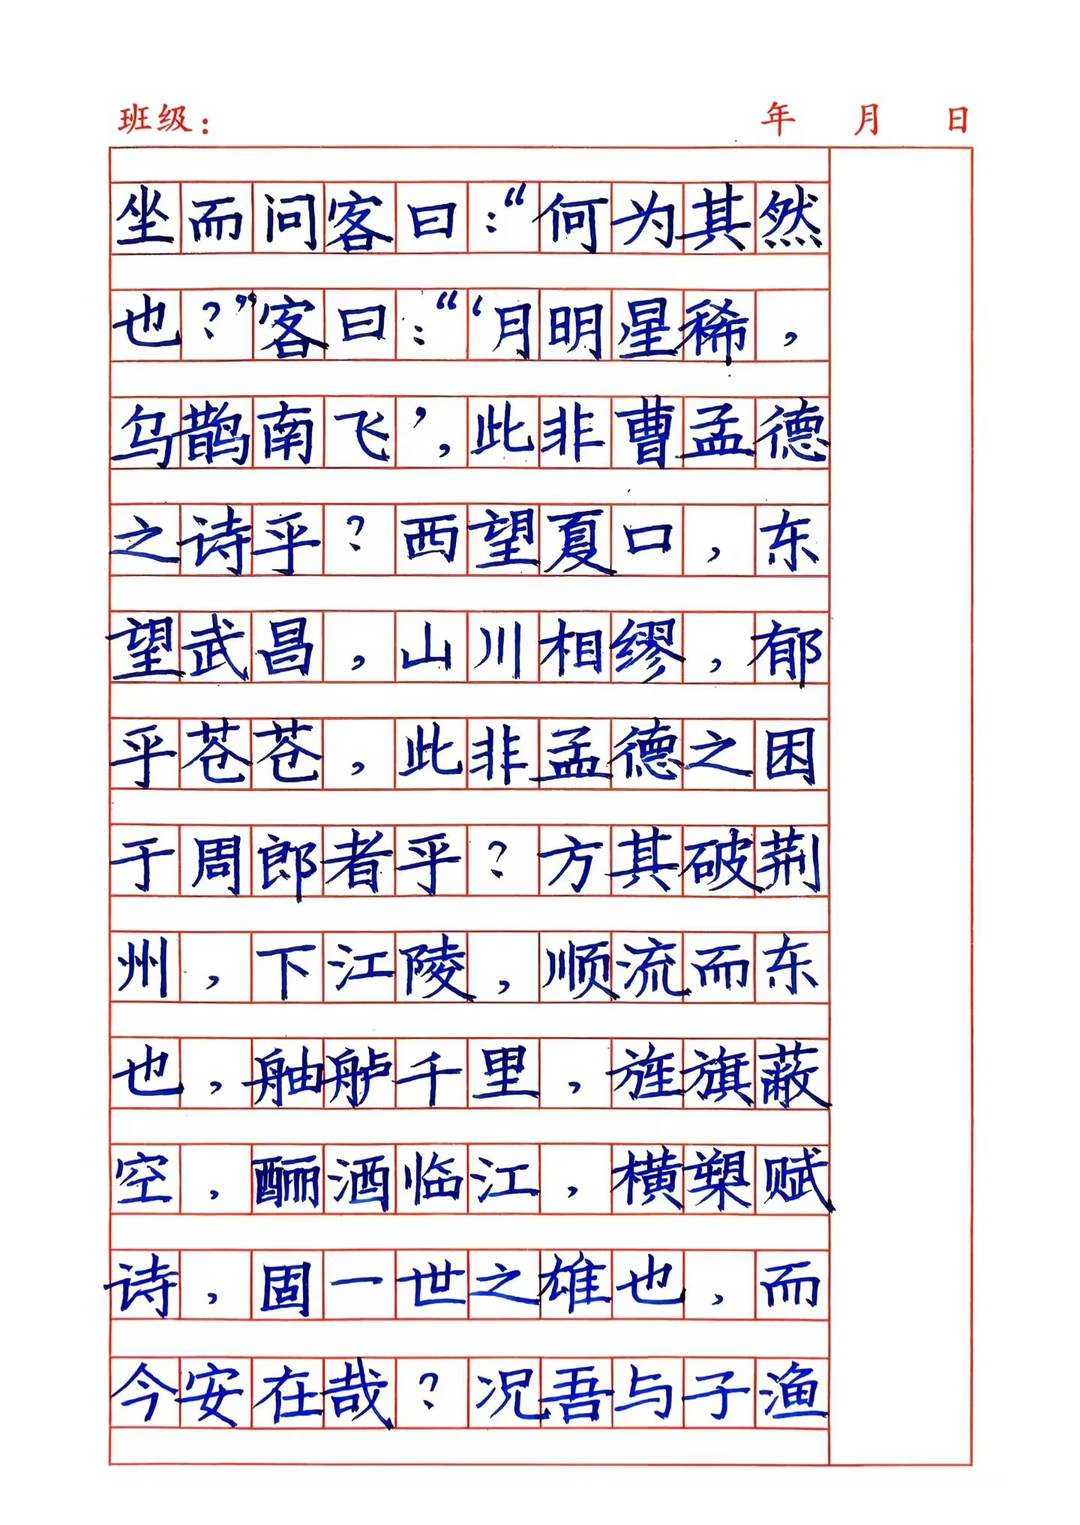 班级： 年 月 日
坐而问客曰：“何为其然
也？”客曰：“‘月明星稀，
乌鹊南飞’，此非曹孟德
之诗乎？西望夏口，东
望武昌，山川相缪，郁
乎苍苍，此非孟德之困
于周郎者乎？方其破荆
州，下江陵，顺流而东
也，舳舻千里，旌旗蔽
空，酾酒临江，横槊赋
诗，固一世之雄也，而
今安在哉？况吾与子渔